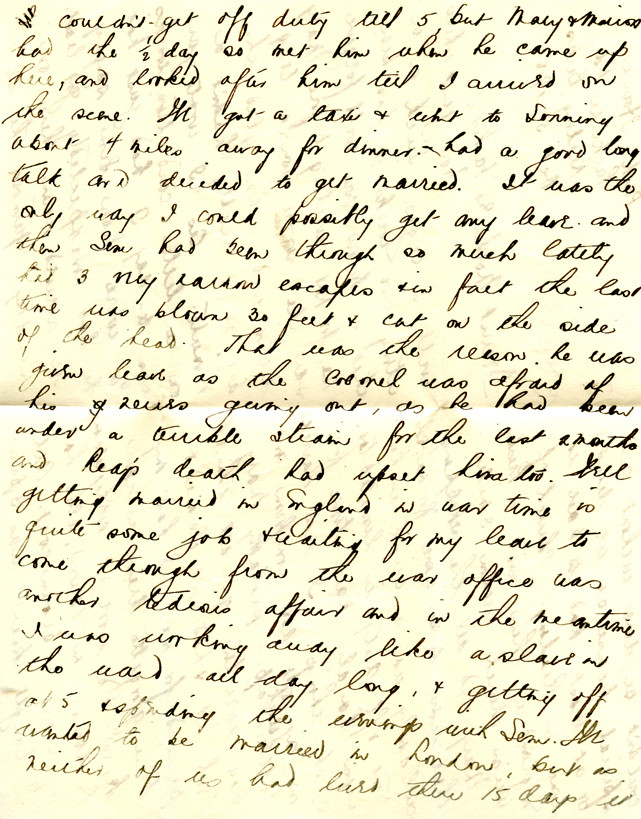 couldn't get off duty till 5, but Mary &
had the ½ day so met him when he came up
here, and looked after him till I arrived on
the scene. We got a taxi & went to Sonning
about 4 miles away for dinner. - had a good long
talk and decided to get married. It was the
only way I could possibly get any leave and
then Sem had been through so much lately
had 3 very narrow escapes & in fact the last
time was blown 30 feet & cut on the side
of the head. That was the reason he was
given leave as the Colonel was afraid of
his nerves giving out, as he had been
under a terrible strain for the last 2 months
and death had upset him too. Well
getting married in England in war time is
quite some job & waiting for my leave to
come through from the war office was
another tedious affair and in the meantime
I was working away like a slave in
the ward all day long, & getting off
at 5 & spending the evenings with Sem. We
wanted to be married in London, but as
neither of us had lived there 15 days it